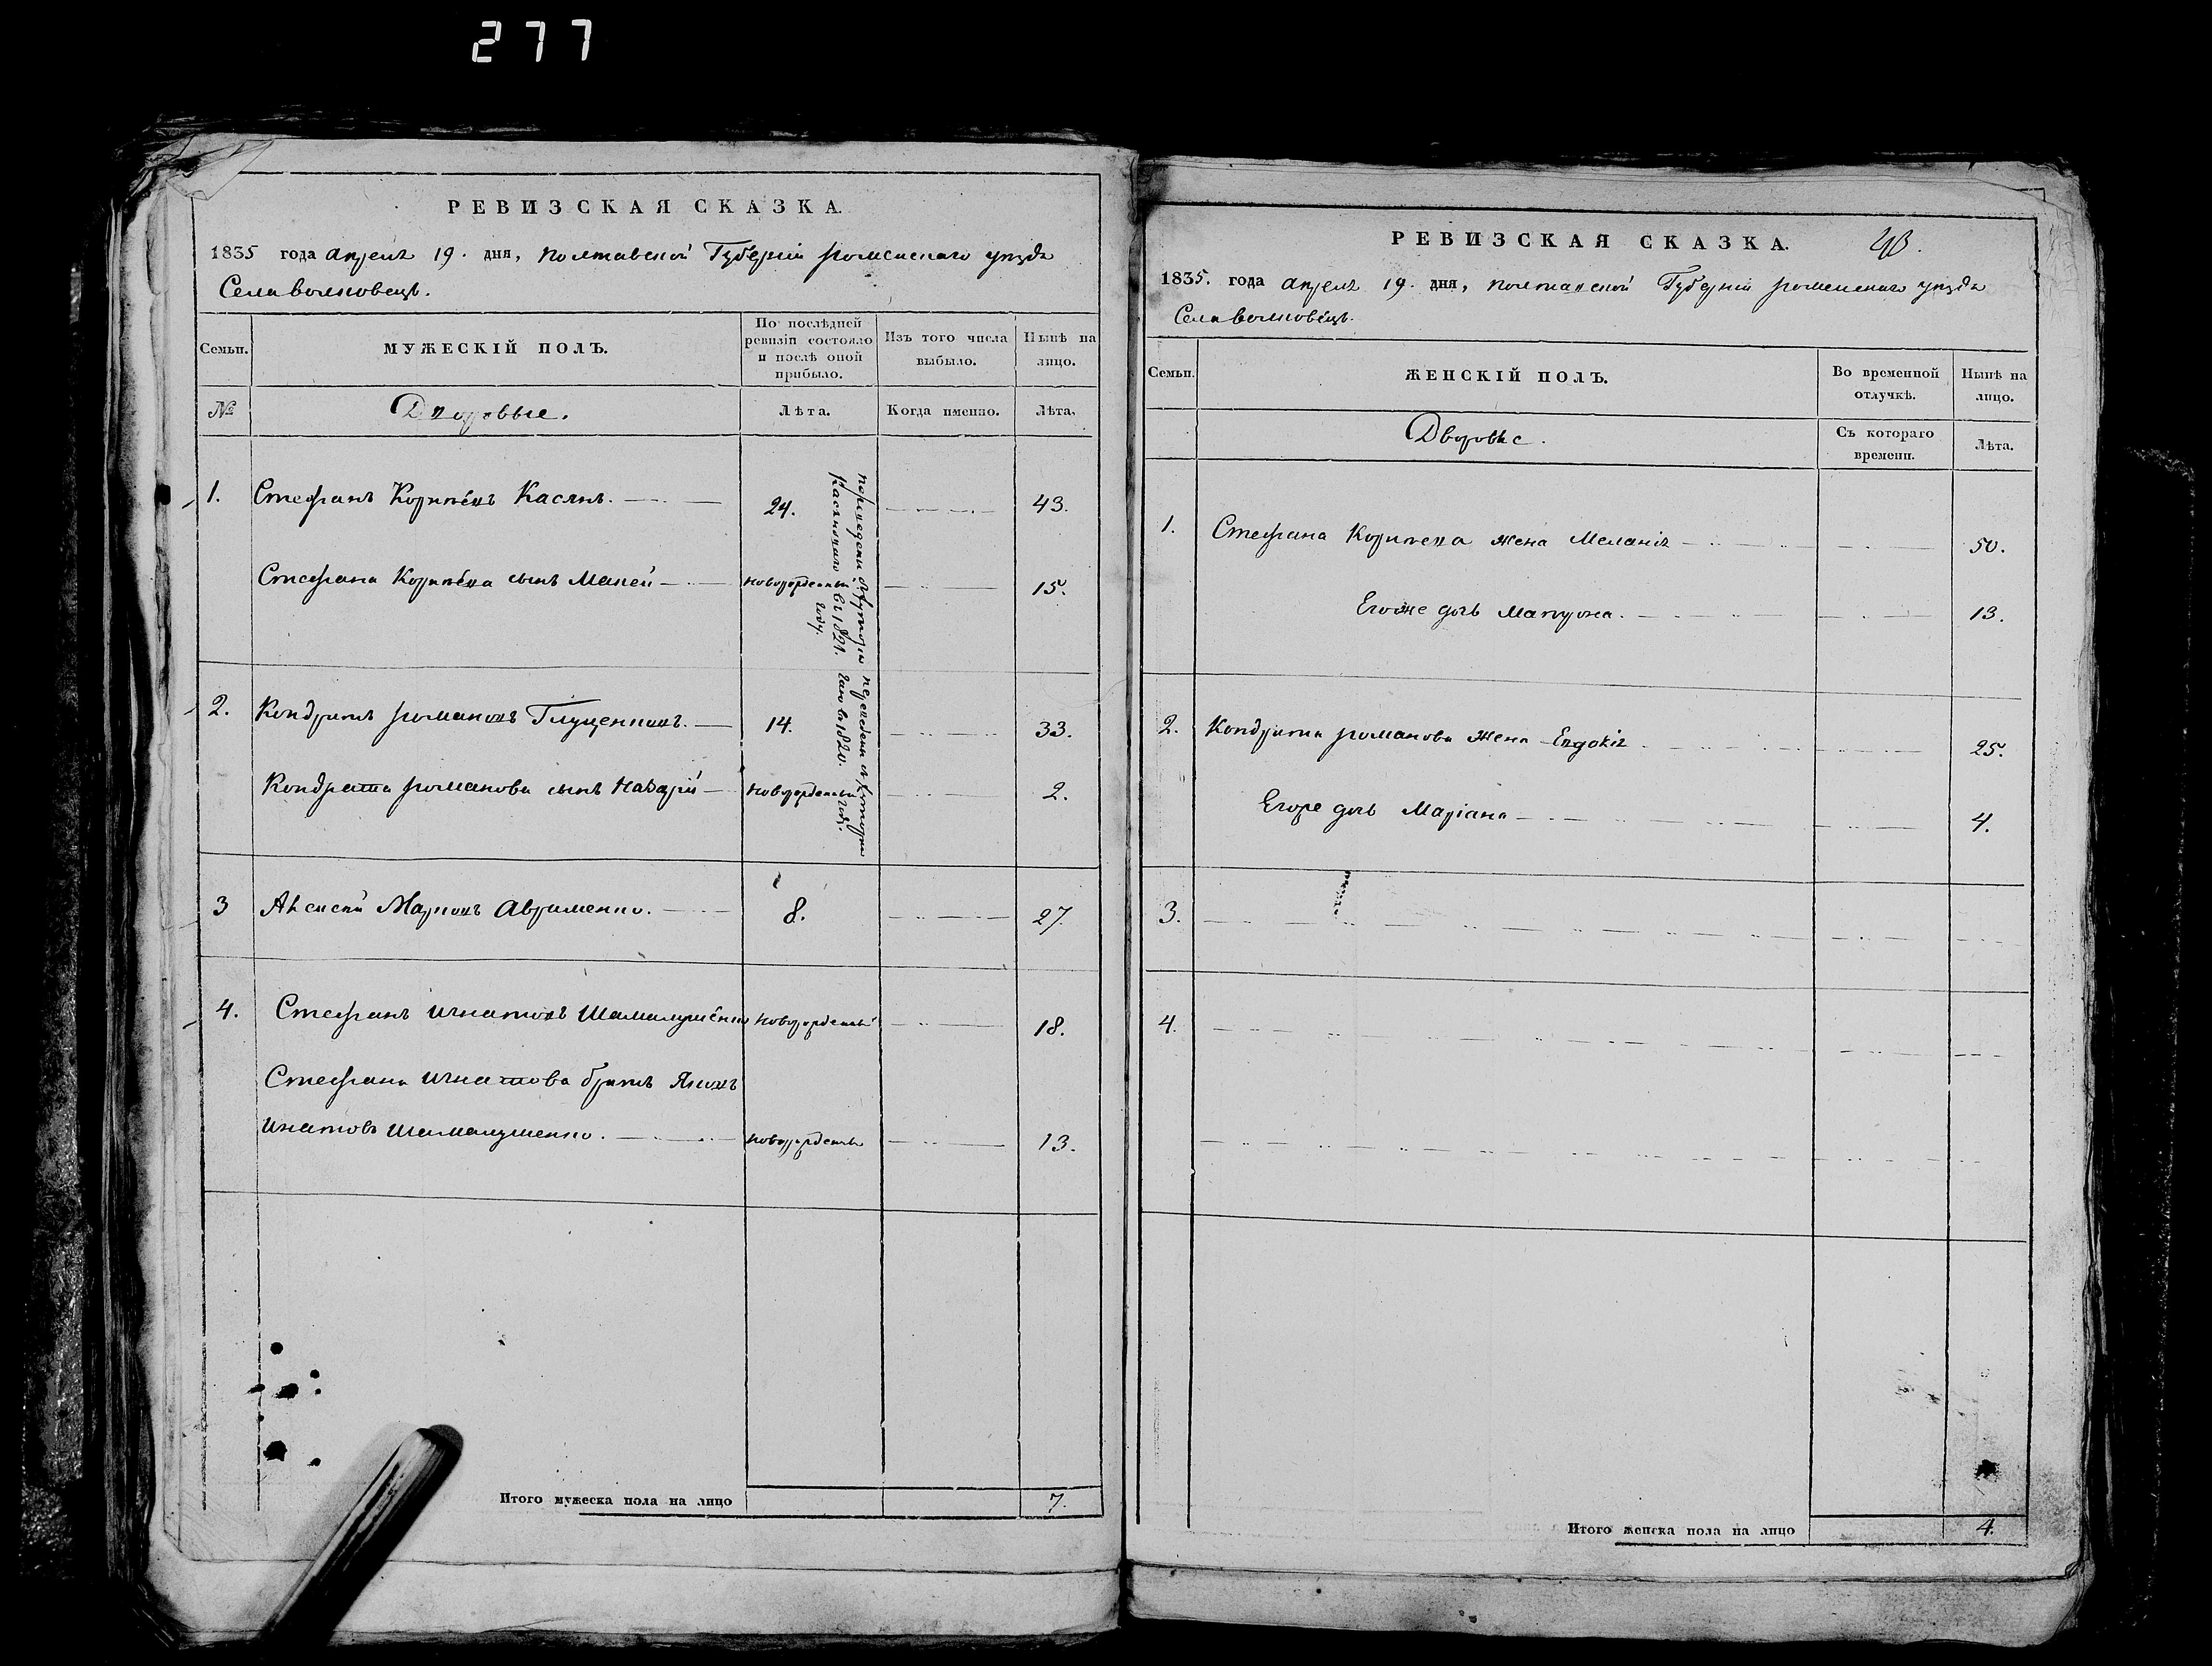 277
РЕВИЗСКАЯ СКАЗКА.
1835 года апреля 19. дня, полтавской Губерніи роменскаго уезда
Села волковецъ.
Семьи.
МУЖЕСКІЙ ПОЛЪ.
По послѣдней ревизіи состояло и послѣ оной прибыло.
Изъ того числа выбыло.
Нынѣ на лицо.
№
Дворовые.
Лѣта.
Когда именно.
Лѣта.
1. Стефанъ Касянъ. 24. 43.
Стефана сынъ новорожденный 15.
2. Кондратъ романовъ Глущенковъ. 14. 33.
Кондрата романова сынъ Назарій новорожденный 2.
въ 1821. году.
3 Марковъ Авраменко. 8. 27.
4. Стефанъ игнатовъ новорожденный 18.
Стефана игнатова братъ Яковъ
игнатовъ новорожденный 13.
Итого мужеска пола на лицо 7.
РЕВИЗСКАЯ СКАЗКА.
1835. года апреля 19. дня, полтавской Губерніи роменскаго уезда
Села волковецъ.
Семьи.
ЖЕНСКІЙ ПОЛЪ.
Во временной отлучкѣ.
Нынѣ на лицо.
Дворовые.
Съ котораго времени.
Лѣта.
1. Стефана жена Меланія 50.
Егоже дочь Матрона. 13.
2. Кондрата романова жена Евдокія 25.
Егоже дочь Маріана 4.
3.
4.
Итого женска пола на лицо 4.